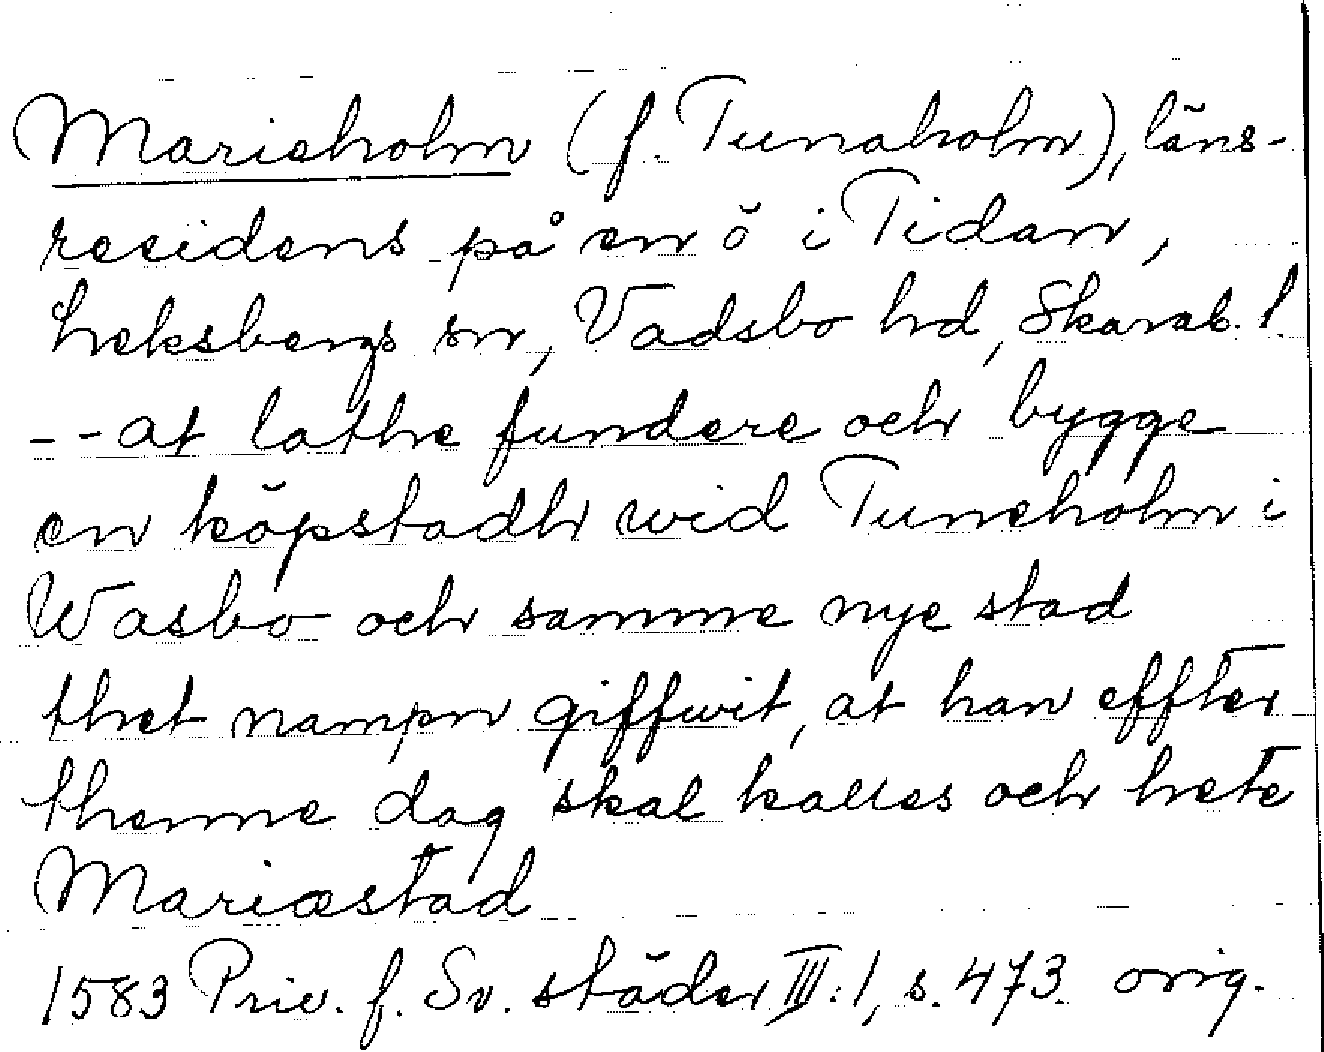 Marieholm (f. Tunaholm), läns-
residens på en ö i Tidan,
Leksbergs sn, Vadsbo hd, Skarab. l.
-- at lathe fundere och bygge
en köpstadh wid Tuneholm i
Wasbo och samme nye stad
thet nampn giffwit, at han effter
thenne dag skal kalles och hete
Mariæstad
1583 Priv. f. Sv. städer III:1, s. 473. orig.